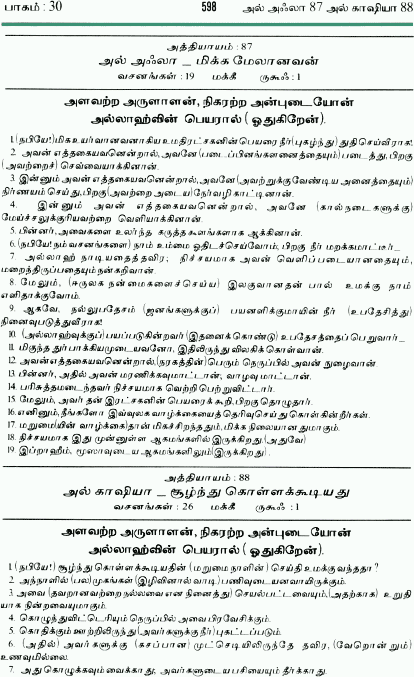 பாகம் : 30 598 அல் அஃலா 87 அல் காஷியா 88
அத்தியாயம் : 87
அல் அஃலா _ மிக்க மேலானவன்
வசனங்கள் : 19 மக்கீ ருகூஃ : 1
அளவற்ற அருளாளன், நிகரற்ற அன்புடையோன்
அல்லாஹ்வின் பெயரால் ( ஓதுகிறேன்).
1. (நபியே!) மிக உயர்வானவனாகிய உமதிரட்சகனின் பெயரை நீர் (புகழ்ந்து) துதி செய்வீராக!
2. அவன் எத்தகையவனென்றால், அவனே (படைப்பினங்களனைத்தையும்) படைத்து, பிறகு
(அவற்றைச்) செவ்வையாக்கினான்.
3. இன்னும் அவன் எத்தகையவனென்றால், அவனே (அவற்றுக்குவேண்டிய அனைத்தையும்)
நிர்ணயம் செய்து, பிறகு (அவற்றை அடைய) நேர்வழி காட்டினான்.
4. இன்னும் அவன் எத்தகையவனென்றால், அவனே (கால்நடைகளுக்கு)
மேய்ச்சலுக்குரியவற்றை வெளியாக்கினான்.
5. பின்னர், அவைகளை உலர்ந்த கருத்த கூளங்களாக ஆக்கினான்.
6. (நபியே! நம் வசனங்களை) நாம் உம்மை ஓதிடச் செய்வோம்; பிறகு நீர் மறக்கமாட்டீர்_
7. அல்லாஹ் நாடியதைத் தவிர; நிச்சயமாக அவன் வெளிப்படையானதையும்,
மறைந்திருப்பதையும் நன்கறிவான்.
8. மேலும், (ஈருலக நன்மைகளைச் செய்ய) இலகுவானதன் பால் உமக்கு நாம்
எளிதாக்குவோம்.
9. ஆகவே, நல்லுபதேசம் (ஜனங்களுக்குப்) பயனளிக்குமாயின் நீர் (உபதேசித்து)
நினைவுபடுத்துவீராக!
10. (அல்லாஹ்வுக்குப்) பயப்படுகின்றவர் (இதனைக் கொண்டு) உபதேசத்தைப் பெறுவார்_
11. மிகுந்த துர்ப்பாக்கியமுடையவனோ, இதிலிருந்து விலகிக் கொள்வான்.
12. அவன் எத்தகையவனென்றால், (நரகத்தின்) பெரும் நெருப்பில் அவன் நுழைவான்
13. பின்னர், அதில் அவன் மரணிக்கவுமாட்டான்; வாழவுமாட்டான்.
14. பரிசுத்தமடைந்தவர் நிச்சயமாக வெற்றி பெற்றுவிட்டார்.
15. மேலும், அவர் தன் இரட்சகனின் பெயரைக் கூறி, பிறகு தொழுதார்.
16. எனினும், நீங்களோ இவ்வுலக வாழ்க்கையைத் தெரிவு செய்து கொள்கின்றீர்கள்.
17. மறுமை (யின் வாழ்க்கை) தான் மிகச்சிறந்ததும், மிக்க நிலையானதுமாகும்.
18. நிச்சயமாக இது முன்னுள்ள ஆகமங்களில் இருக்கிறது. (அதுவே)
19. இப்றாஹீம், மூஸாவுடைய ஆகமங்களிலும் (இருக்கிறது).
அத்தியாயம் : 88
அல் காஷியா _ சூழ்ந்து கொள்ளக்கூடியது
வசனங்கள் : 26 மக்கீ ருகூஃ : 1
அளவற்ற அருளாளன், நிகரற்ற அன்புடையோன்
அல்லாஹ்வின் பெயரால் ( ஓதுகிறேன்).
1. (நபியே!) சூழ்ந்து கொள்ளக்கூடியதின் (மறுமை நாளின்) செய்தி உமக்கு வந்ததா?
2. அந்நாளில் (பல) முகங்கள் (இழிவினால் வாடி) பணிவுடையனவாயிருக்கும்.
3. அவை (தவறானவற்றை நல்லவை என நினைத்து) செயல்பட்டவையும், (அதற்காக) உறுதி
யாக நின்றவையுமாகும்.
4. கொழுந்துவிட்டெரியும் நெருப்பில் அவை பிரவேசிக்கும்.
5. கொதிக்கும் ஊற்றிலிருந்து (அவர்களுக்கு நீர்) புகட்டப்படும்.
6. (அதில்) அவர்களுக்கு (கசப்பான) முட்செடியிலிருந்தே தவிர, (வேறொன்றும்)
உணவுமில்லை.
7. அது கொழுக்கவும் வைக்காது; அவர்களுடைய பசியையும் தீர்க்காது.